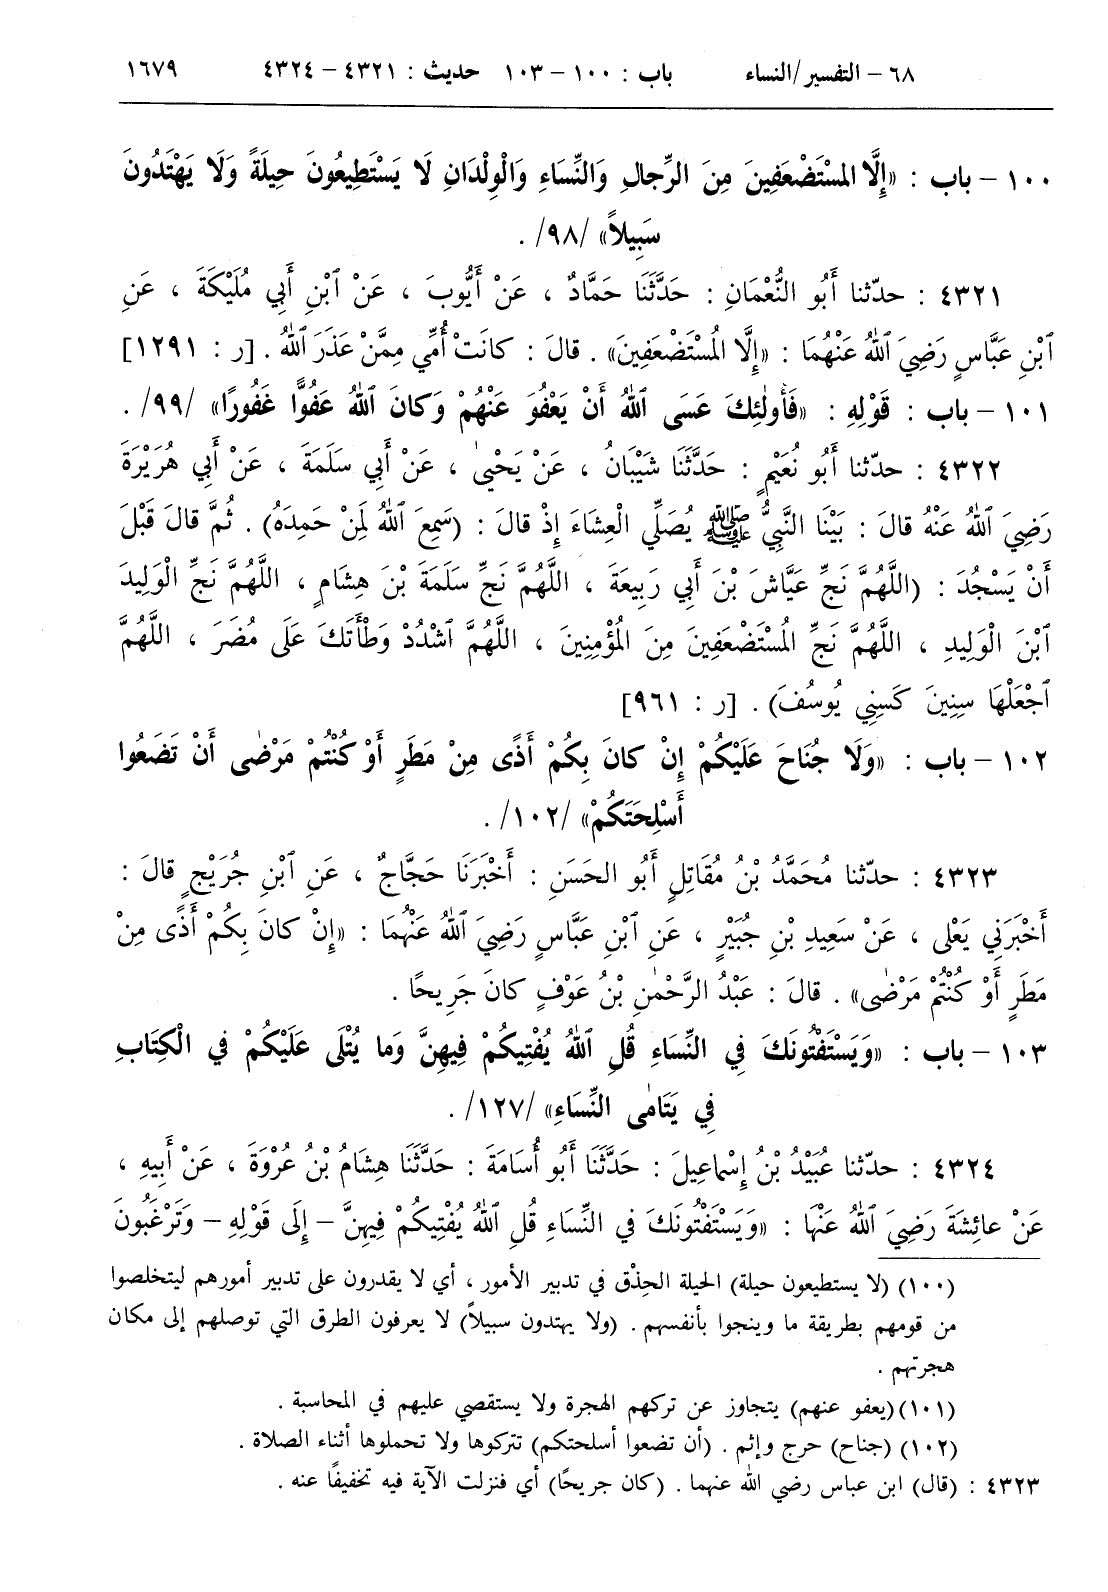 ٦٨ – التفسير/النساء باب : ١٠٠ – ١٠٣ حديث : ٤٣٢١ – ٤٣٢٤ ١٦٧٩
١٠٠ – باب : «إِلَّا المْسْتَضْعَفِينَ مِنَ الرِّجالِ وَالنِّسَاءِ وَالْوِلْدَانِ لَا يَسْتَطِيعُونَ حِيلَةً وَلَا يَهْتَدُونَ
سَبِيلاً» /٩٨/ .
٤٣٢١ : حدّثنا أَبُو النُّعْمَانِ : حَدَّثَنَا حَمَّادٌ ، عَنْ أَيُّوبَ ، عَنْ ٱبْنِ أَبِي مُلَيْكَةَ ، عَنِ
ٱبْنِ عَبَّاسٍ رَضِيَ ٱللهُ عَنْهُمَا : «إِلَّا المُسْتَضْعَفِينَ» . قالَ : كانَتْ أُمِّي مِمَّنْ عَذَرَ ٱللهُ . [ر : ١٢٩١]
١٠١ – باب : قَوْلِهِ : «فَأُولٰئِكَ عَسَى ٱللهُ أَنْ يَعْفُوَ عَنْهُمْ وَكانَ ٱللهُ عَفُوًّا غَفُورًا» /٩٩/ .
٤٣٢٢ : حدّثنا أَبُو نُعَيْمٍ : حَدَّثَنَا شَيْبَانُ ، عَنْ يَحْيىٰ ، عَنْ أَبِي سَلَمَةَ ، عَنْ أَبِي هُرَيْرَةَ
رَضِيَ ٱللهُ عَنْهُ قالَ : بَيْنَا النَّبِيُّ ﷺ يُصَلِّي الْعِشَاءَ إِذْ قالَ : (سَمِعَ ٱللهُ لِمَنْ حَمِدَهُ) . ثُمَّ قالَ قَبْلَ
أَنْ يَسْجُدَ : (اللَّهُمَّ نَجِّ عَيَّاشَ بْنَ أَبِي رَبِيعَةَ ، اللَّهُمَّ نَجِّ سَلَمَةَ بْنَ هِشَامٍ ، اللَّهُمَّ نَجِّ الْوَلِيدَ
ٱبْنَ الْوَلِيدِ ، اللَّهُمَّ نَجِّ المُسْتَضْعَفِينَ مِنَ المُؤْمِنِينَ ، اللَّهُمَّ ٱشْدُدْ وَطْأَتَكَ عَلَى مُضَرَ ، اللَّهُمَّ
ٱجْعَلْهَا سِنِينَ كَسِنِي يُوسُفَ) . [ر : ٩٦١]
١٠٢ – باب : «وَلَا جُنَاحَ عَلَيْكُمْ إِنْ كانَ بِكُمْ أَذًى مِنْ مَطَرٍ أَوْ كُنْتُمْ مَرْضٰى أَنْ تَضَعُوا
أَسْلِحَتَكُمْ» /١٠٢/ .
٤٣٢٣ : حدّثنا مُحَمَّدُ بْنُ مُقَاتِلٍ أَبُو الحَسَنِ : أَخْبَرَنَا حَجَّاجٌ ، عَنِ ٱبْنِ جُرَيْجٍ قالَ :
أَخْبَرَنِي يَعْلَى ، عَنْ سَعِيدِ بْنِ جُبَيْرٍ ، عَنِ ٱبْنِ عَبَّاسٍ رَضِيَ ٱللهُ عَنْهُمَا : «إِنْ كانَ بِكُمْ أَذًى مِنْ
مَطَرٍ أَوْ كُنْتُمْ مَرْضٰى» . قالَ : عَبْدُ الرَّحْمٰنِ بْنُ عَوْفٍ كانَ جَرِيحًا .
١٠٣ – باب : «وَيَسْتَفْتُونَكَ فِي النِّسَاءِ قُلِ ٱللهُ يُفْتِيكُمْ فِيهِنَّ وَما يُتْلَى عَلَيْكُمْ فِي الْكِتَابِ
فِي يَتَامٰى النِّسَاءِ» /١٢٧/ .
٤٣٢٤ : حدّثنا عُبَيْدُ بْنُ إِسْماعِيلَ : حَدَّثَنَا أَبُو أُسَامَةَ : حَدَّثَنَا هِشَامُ بْنُ عُرْوَةَ ، عَنْ أَبِيهِ ،
عَنْ عائِشَةَ رَضِيَ ٱللهُ عَنْهَا : «وَيَسْتَفْتُونَكَ فِي النِّسَاءِ قُلِ ٱللهُ يُفْتِيكُمْ فِيهِنَّ – إِلَى قَوْلِهِ – وَتَرْغَبُونَ
(١٠٠) (لا يستطيعون حيلة) الحيلة الحِذْق في تدبير الأمور ، أي لا يقدرون على تدبير أمورهم ليتخلصوا
من قومهم بطريقة ما وينجوا بأنفسهم . (ولا يهتدون سبيلاً) لا يعرفون الطرق التي توصلهم إلى مكان
هجرتهم .
(١٠١) (يعفو عنهم) يتجاوز عن تركهم الهجرة ولا يستقصي عليهم في المحاسبة .
(١٠٢) (جناح) حرج وإثم . (أن تضعوا أسلحتكم) تتركوها ولا تحملوها أثناء الصلاة .
٤٣٢٣ : (قال) ابن عباس رضي الله عنهما . (كان جريحًا) أي فنزلت الآية فيه تخفيفًا عنه .